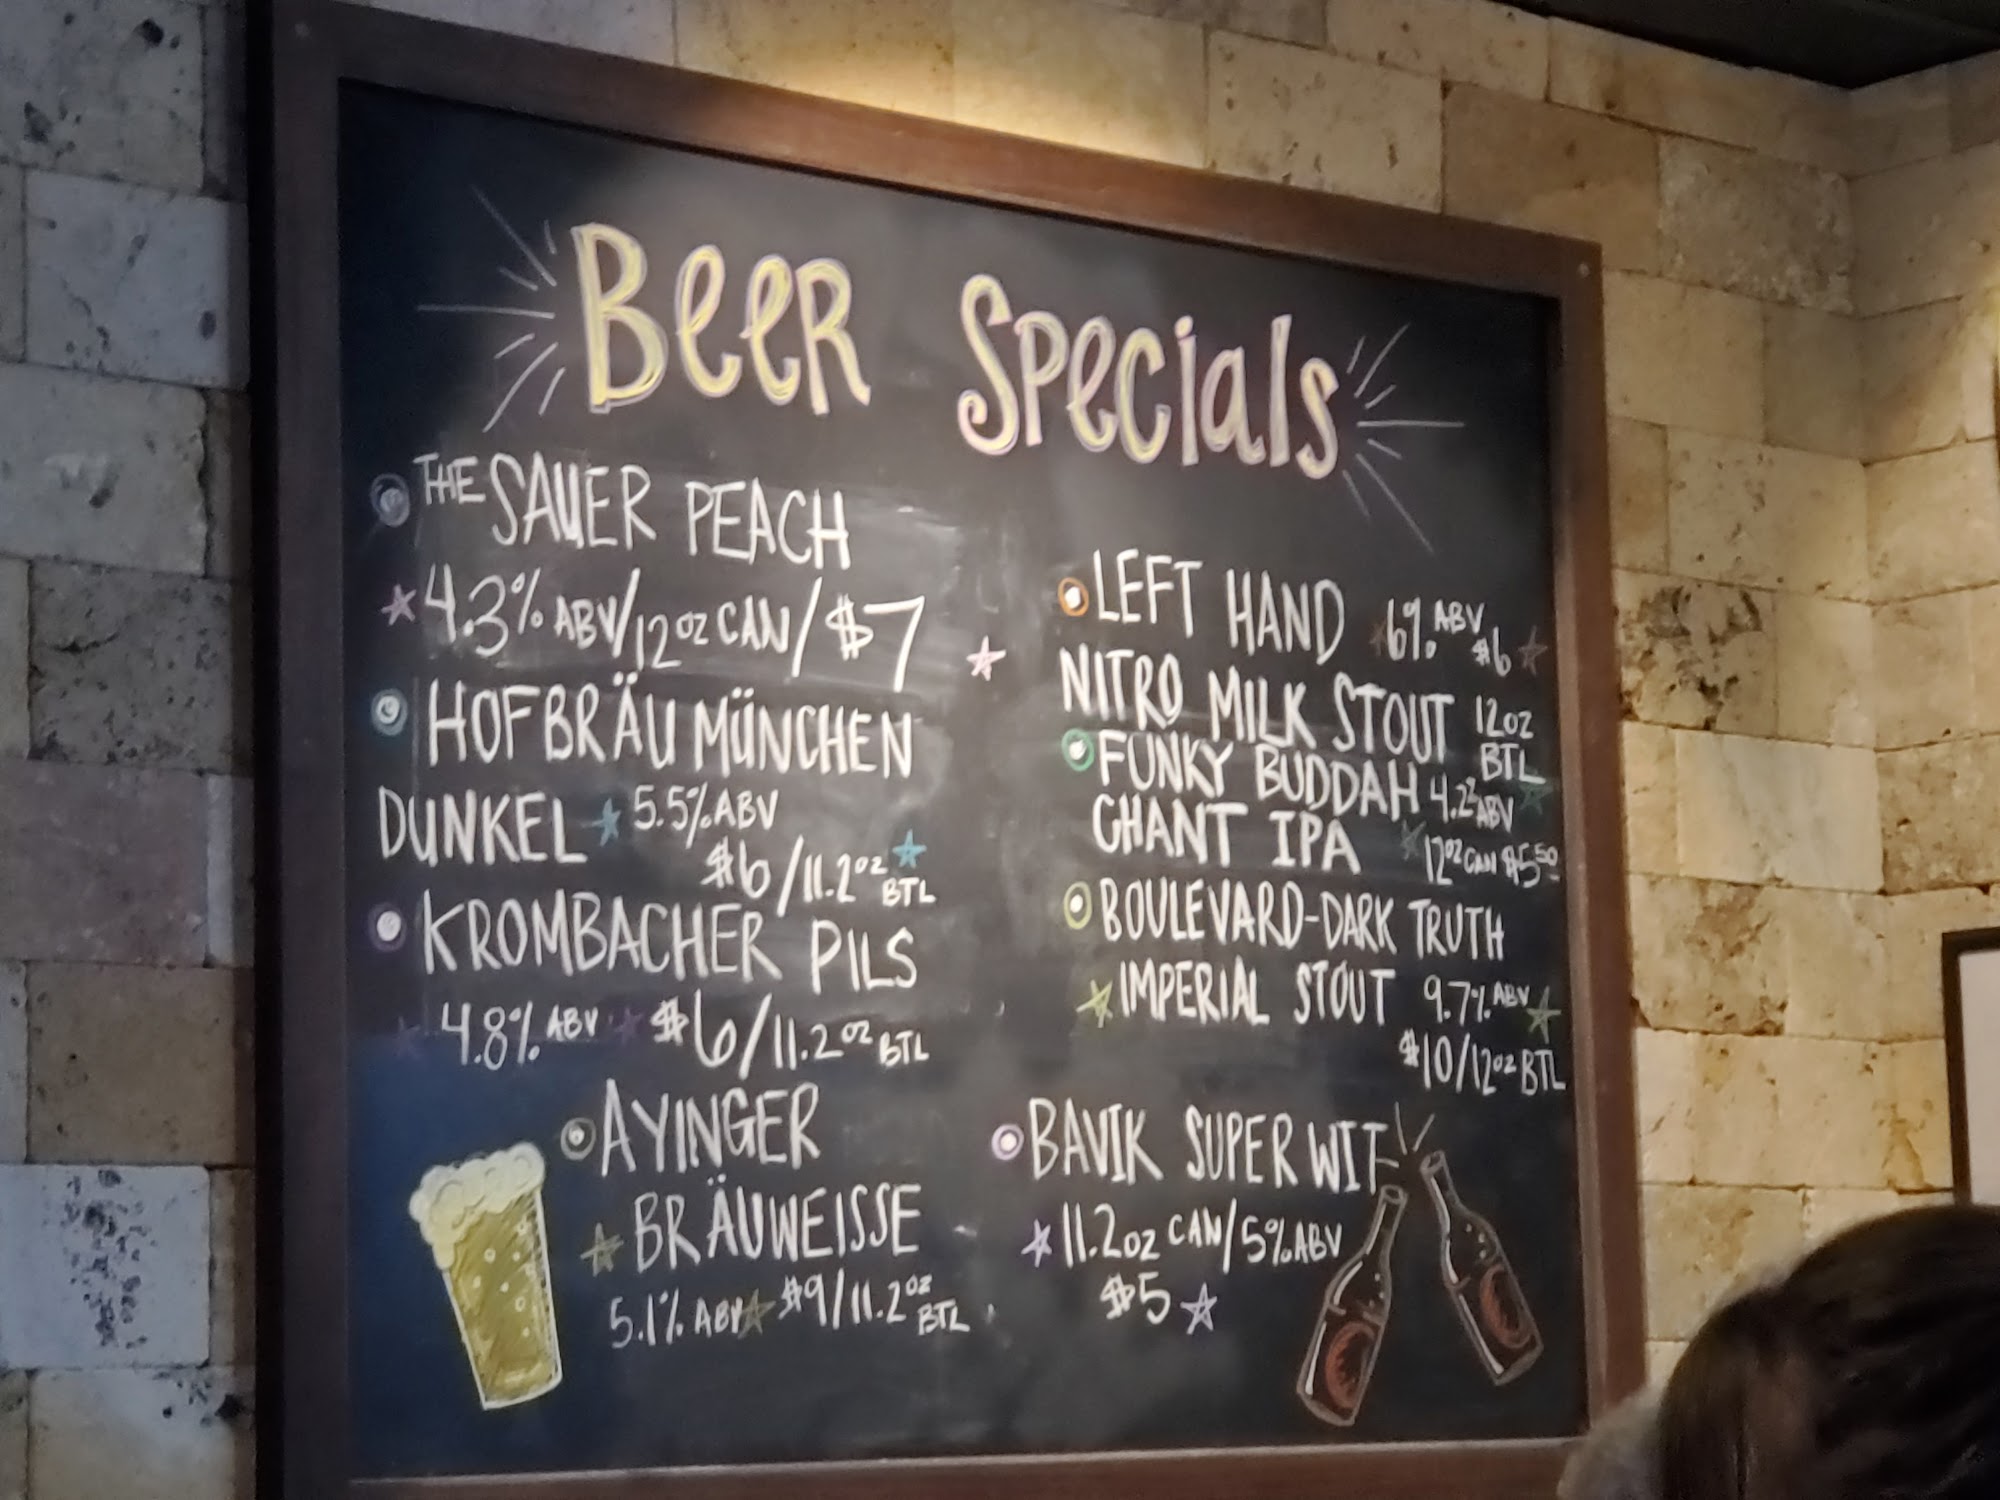 Beer Specials
THE SAUER PEACH
4.3% ABV/12oz CAN/$7
HOFBRÄU MÜNCHEN
DUNKEL 5.5% ABV
$6/11.2oz BTL
KROMBACHER PILS
4.8% ABV $6/11.2oz BTL
AYINGER
BRÄUWEISSE
5.1% ABV $9/11.2oz BTL
LEFT HAND 6% ABV $6
NITRO MILK STOUT 12oz BTL
FUNKY BUDDAH 4.2% ABV
CHANT IPA 12oz CAN $5.50
BOULEVARD-DARK TRUTH
IMPERIAL STOUT 9.7% ABV
$10/12oz BTL
BAVIK SUPER WIT
11.2oz CAN/5% ABV
$5